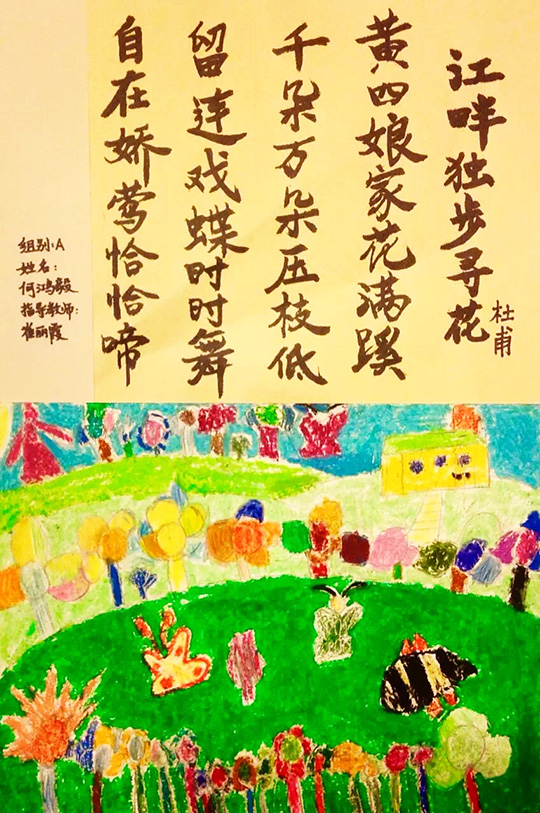 江畔独步寻花
杜甫
黄四娘家花满蹊
千朵万朵压枝低
留连戏蝶时时舞
自在娇莺恰恰啼
组别:A
姓名:
何鸿毅
指导教师:
崔丽霞